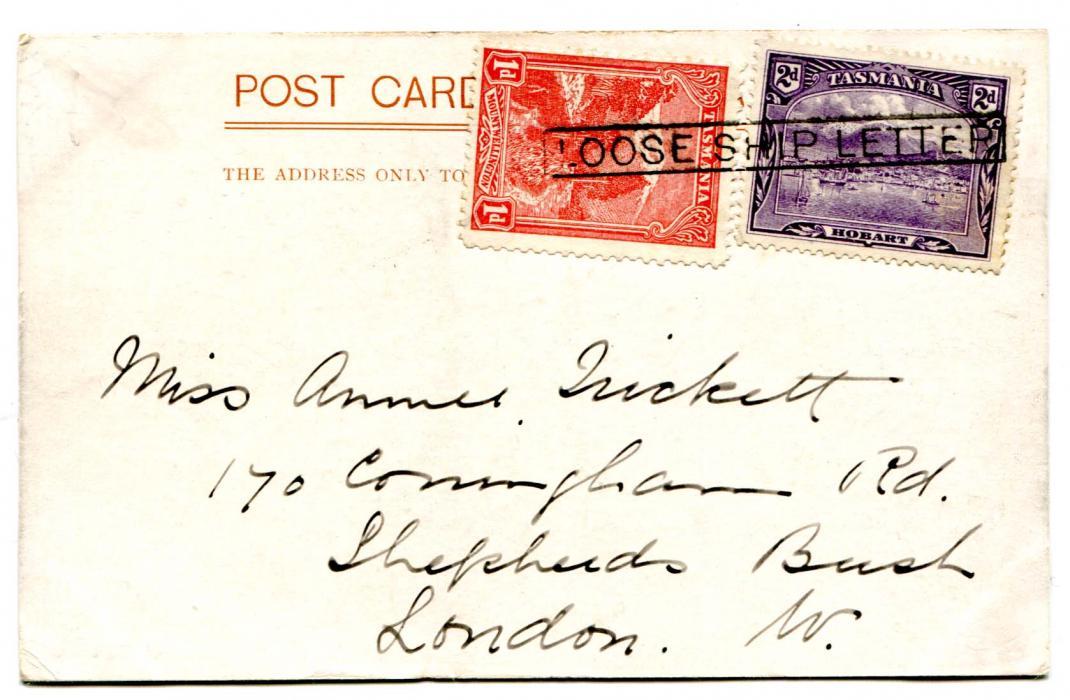 POST CARD
THE ADDRESS ONLY TO
1d TASMANIA 1d
MOUNT WELLINGTON
2d TASMANIA 2d
HOBART
LOOSE SHIP LETTER
Miss Annie Trickett
170 Coningham Rd.
Shepherds Bush
London. W.